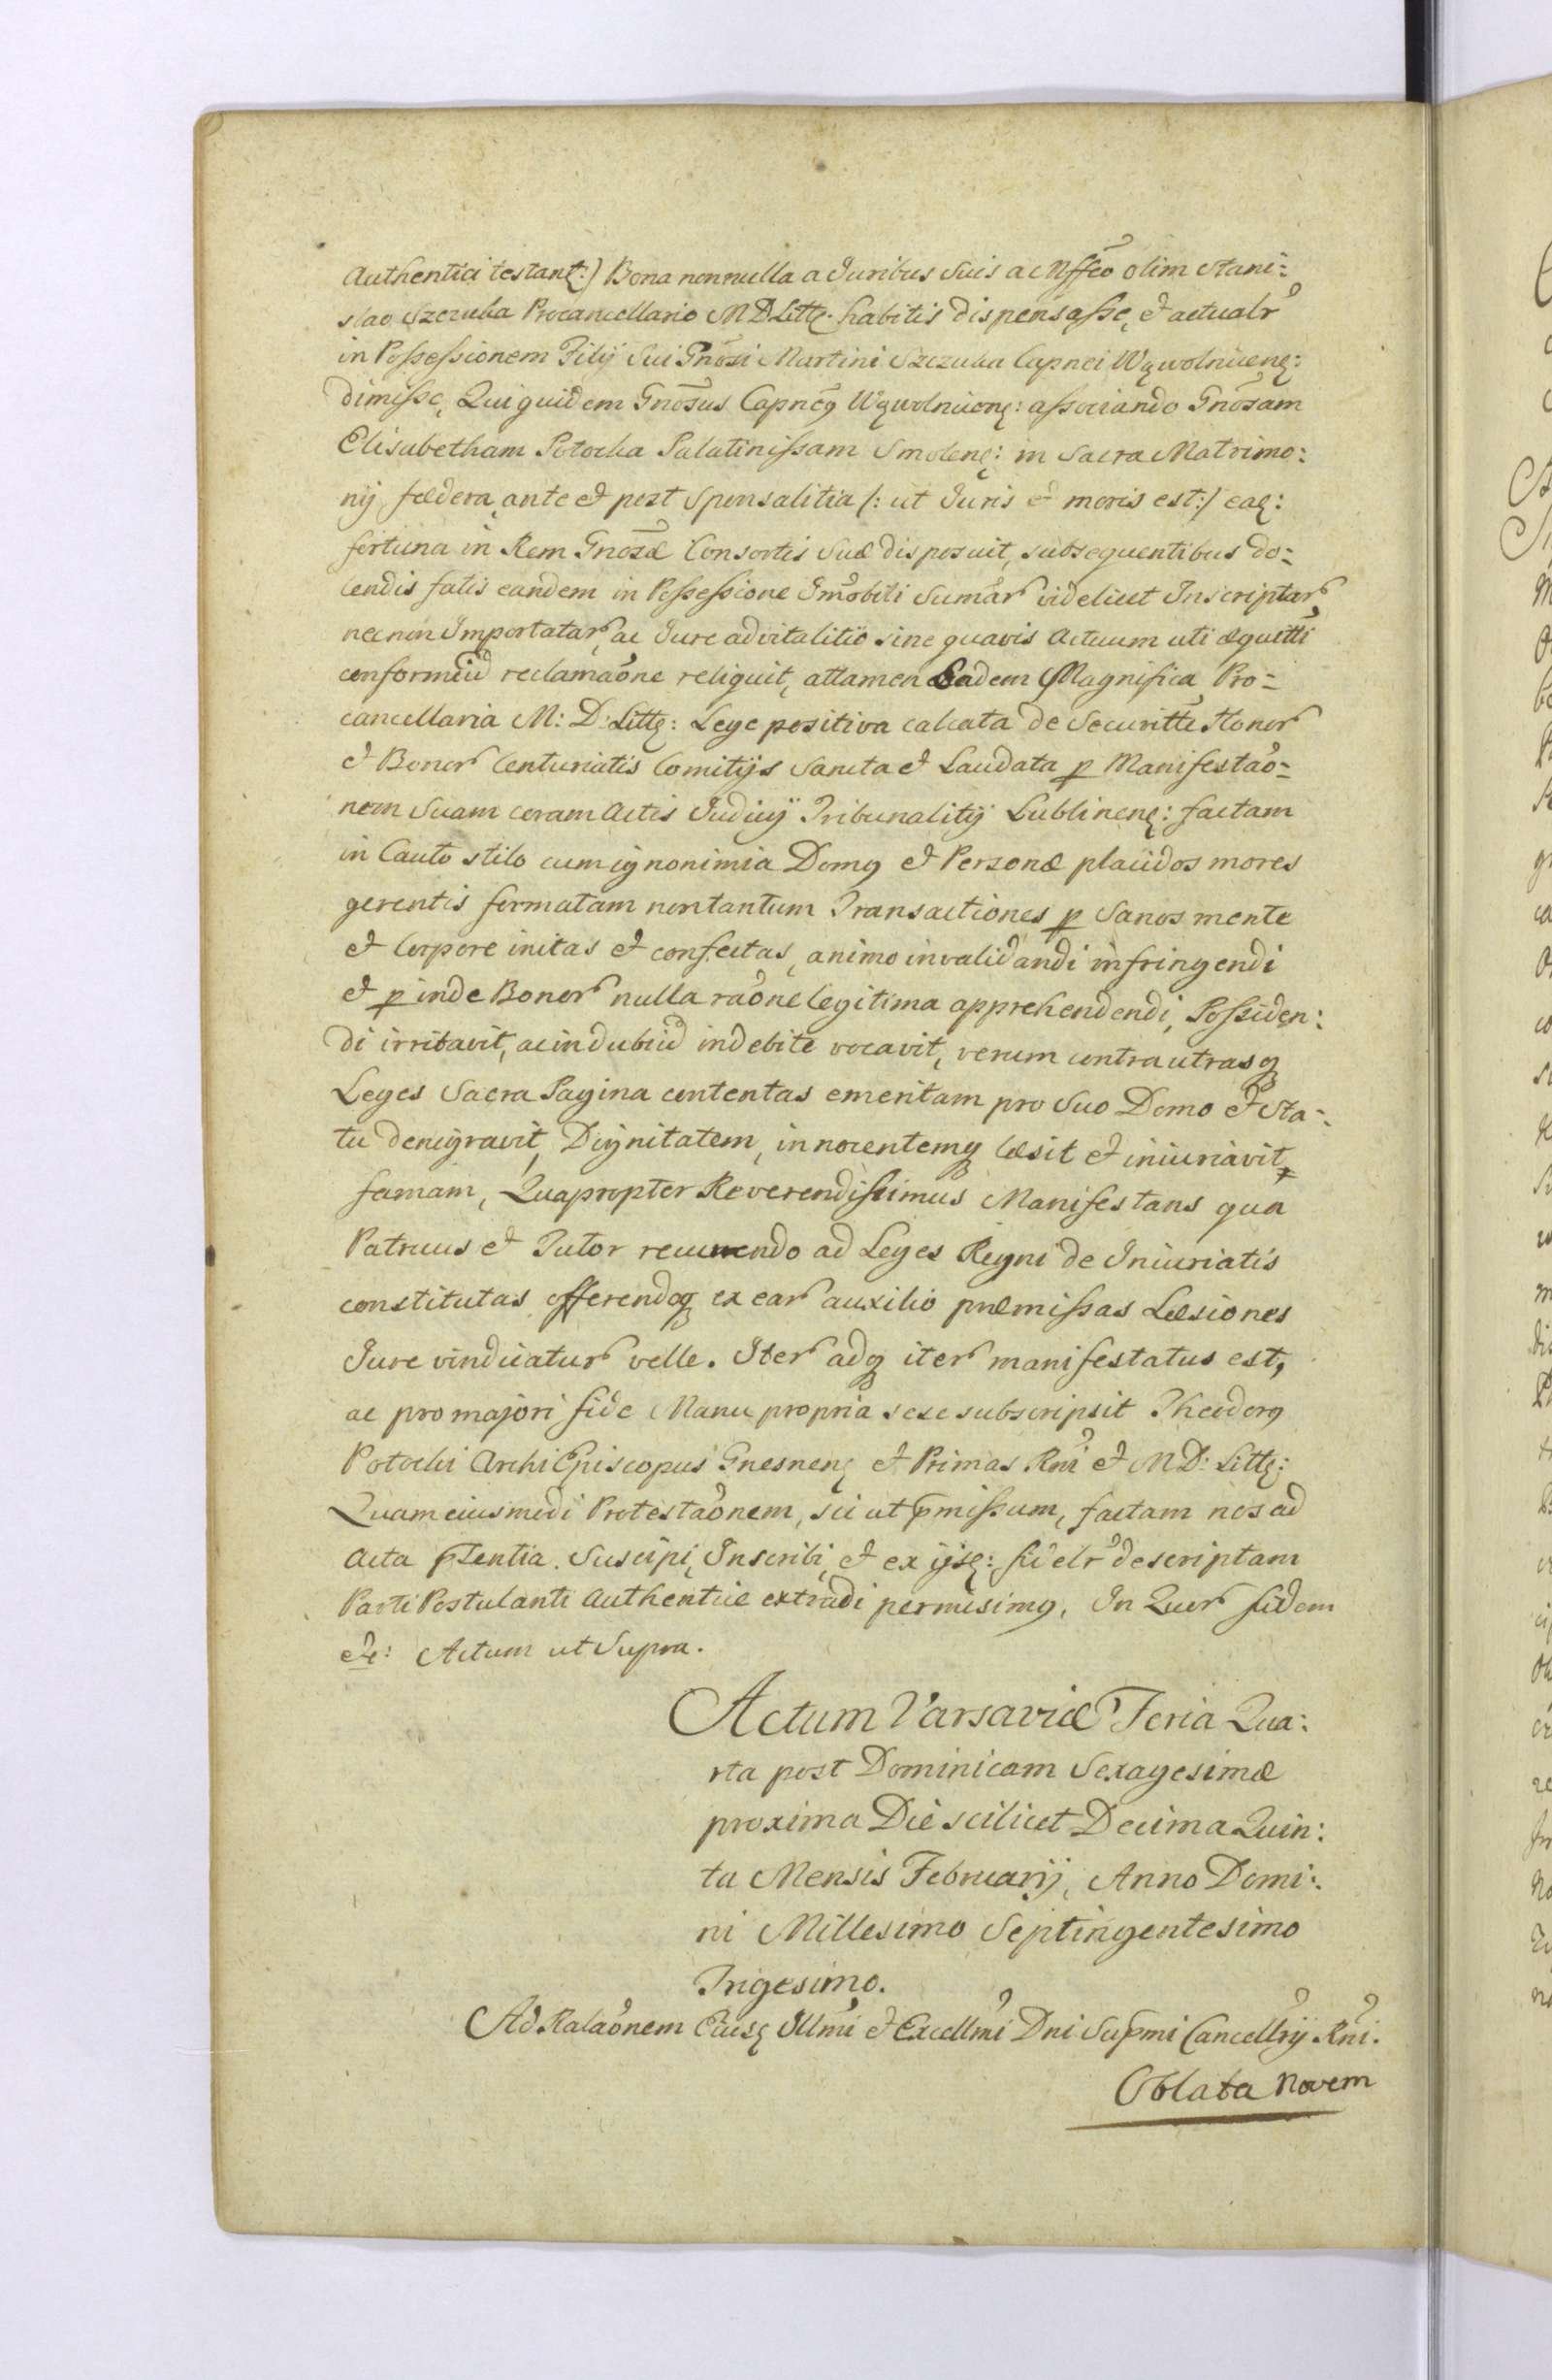 Authentici testant:) Bona nonnulla a Juribus Suis a Mffco olim Stani:
slao Szczuka Procancellario M D Litt: habitis dispensasse, et actualr
in Possessionem Filij Sui Gnosi Martini Szczuka Capnei Wąwolnicen:
dimisse, Qui quidem Gnosus Capneus Wąwolnicen: associando Gnosam
Elisabetham Potocka Palatinissam Smolen: in Sacra Matrimo:
nij foedera, ante et post Sponsalitia /: ut Juris et moris est :/ ea:
fortuna in Rem Gnosæ Consortis Suæ disposuit, subsequentibus do=
lendis fatis eandem in Possessione Jmobili Sumar videlicet Inscriptar
necnon Importatar, ac Jure advitalitio sine quavis Actuum uti æquitti
conformiu reclamaone reliquit, attamen Eadem Magnifica Pro=
cancellaria M: D: Litt: Lege positiva calcata de Securitte Honor
et Bonor Centuriatis Comitijs Sancta et Laudata p Manifestao=
nem Suam coram Actis Judicij Tribunalitij Lublinen: factam
in Cauto stilo cum ignonimia Domus et Personæ placidos mores
gerentis formatam non tantum Transactiones p Sanos mente
et Corpore initas et confectas, animo invalidandi infringendi
et p inde Bonor nulla raone legitima apprehendendi, Possiden:
di irritavit, ac in dubiu indebite vocavit, verum contra utrasq
Leges Sacra Pagina contentas emeritam pro Suo Domo et Sta=
tu denigravit, Dignitatem, innocentemq læsit et iniuriavit
famam, Quapropter Reverendissimus Manifestans qua
Patruus et Tutor recurrendo ad Leges Regni de Iniuriatis
constitutas offerendoq ex ear auxilio præmissas Læsiones
Jure vindicatur velle. Iter adq iter manifestatus est,
ac pro majori fide Manu propria sese subscripsit Theodorus
Potocki Archi Episcopus Gnesnen et Primas Rni et M D: Litt:
Quam eiusmodi Protestaonem, sic ut pmissum, factam nos ad
Acta pntia Suscipi, Inscribi, et ex ijs: fidelr descriptam
Parti Postulanti Authentice extradi permisimus. In Quor fidem
etc: Actum ut Supra.
Actum Varsaviæ Feria Qua:
rta post Dominicam Sexagesimæ
proxima Die scilicet Decima Quin:
ta Mensis Februarij, Anno Domi:
ni Millesimo Septingentesimo
Trigesimo.
Ad Ralaonem Eius Illmi et Excellmi Dni Supmi Cancellrij Rni.
Oblata Novem